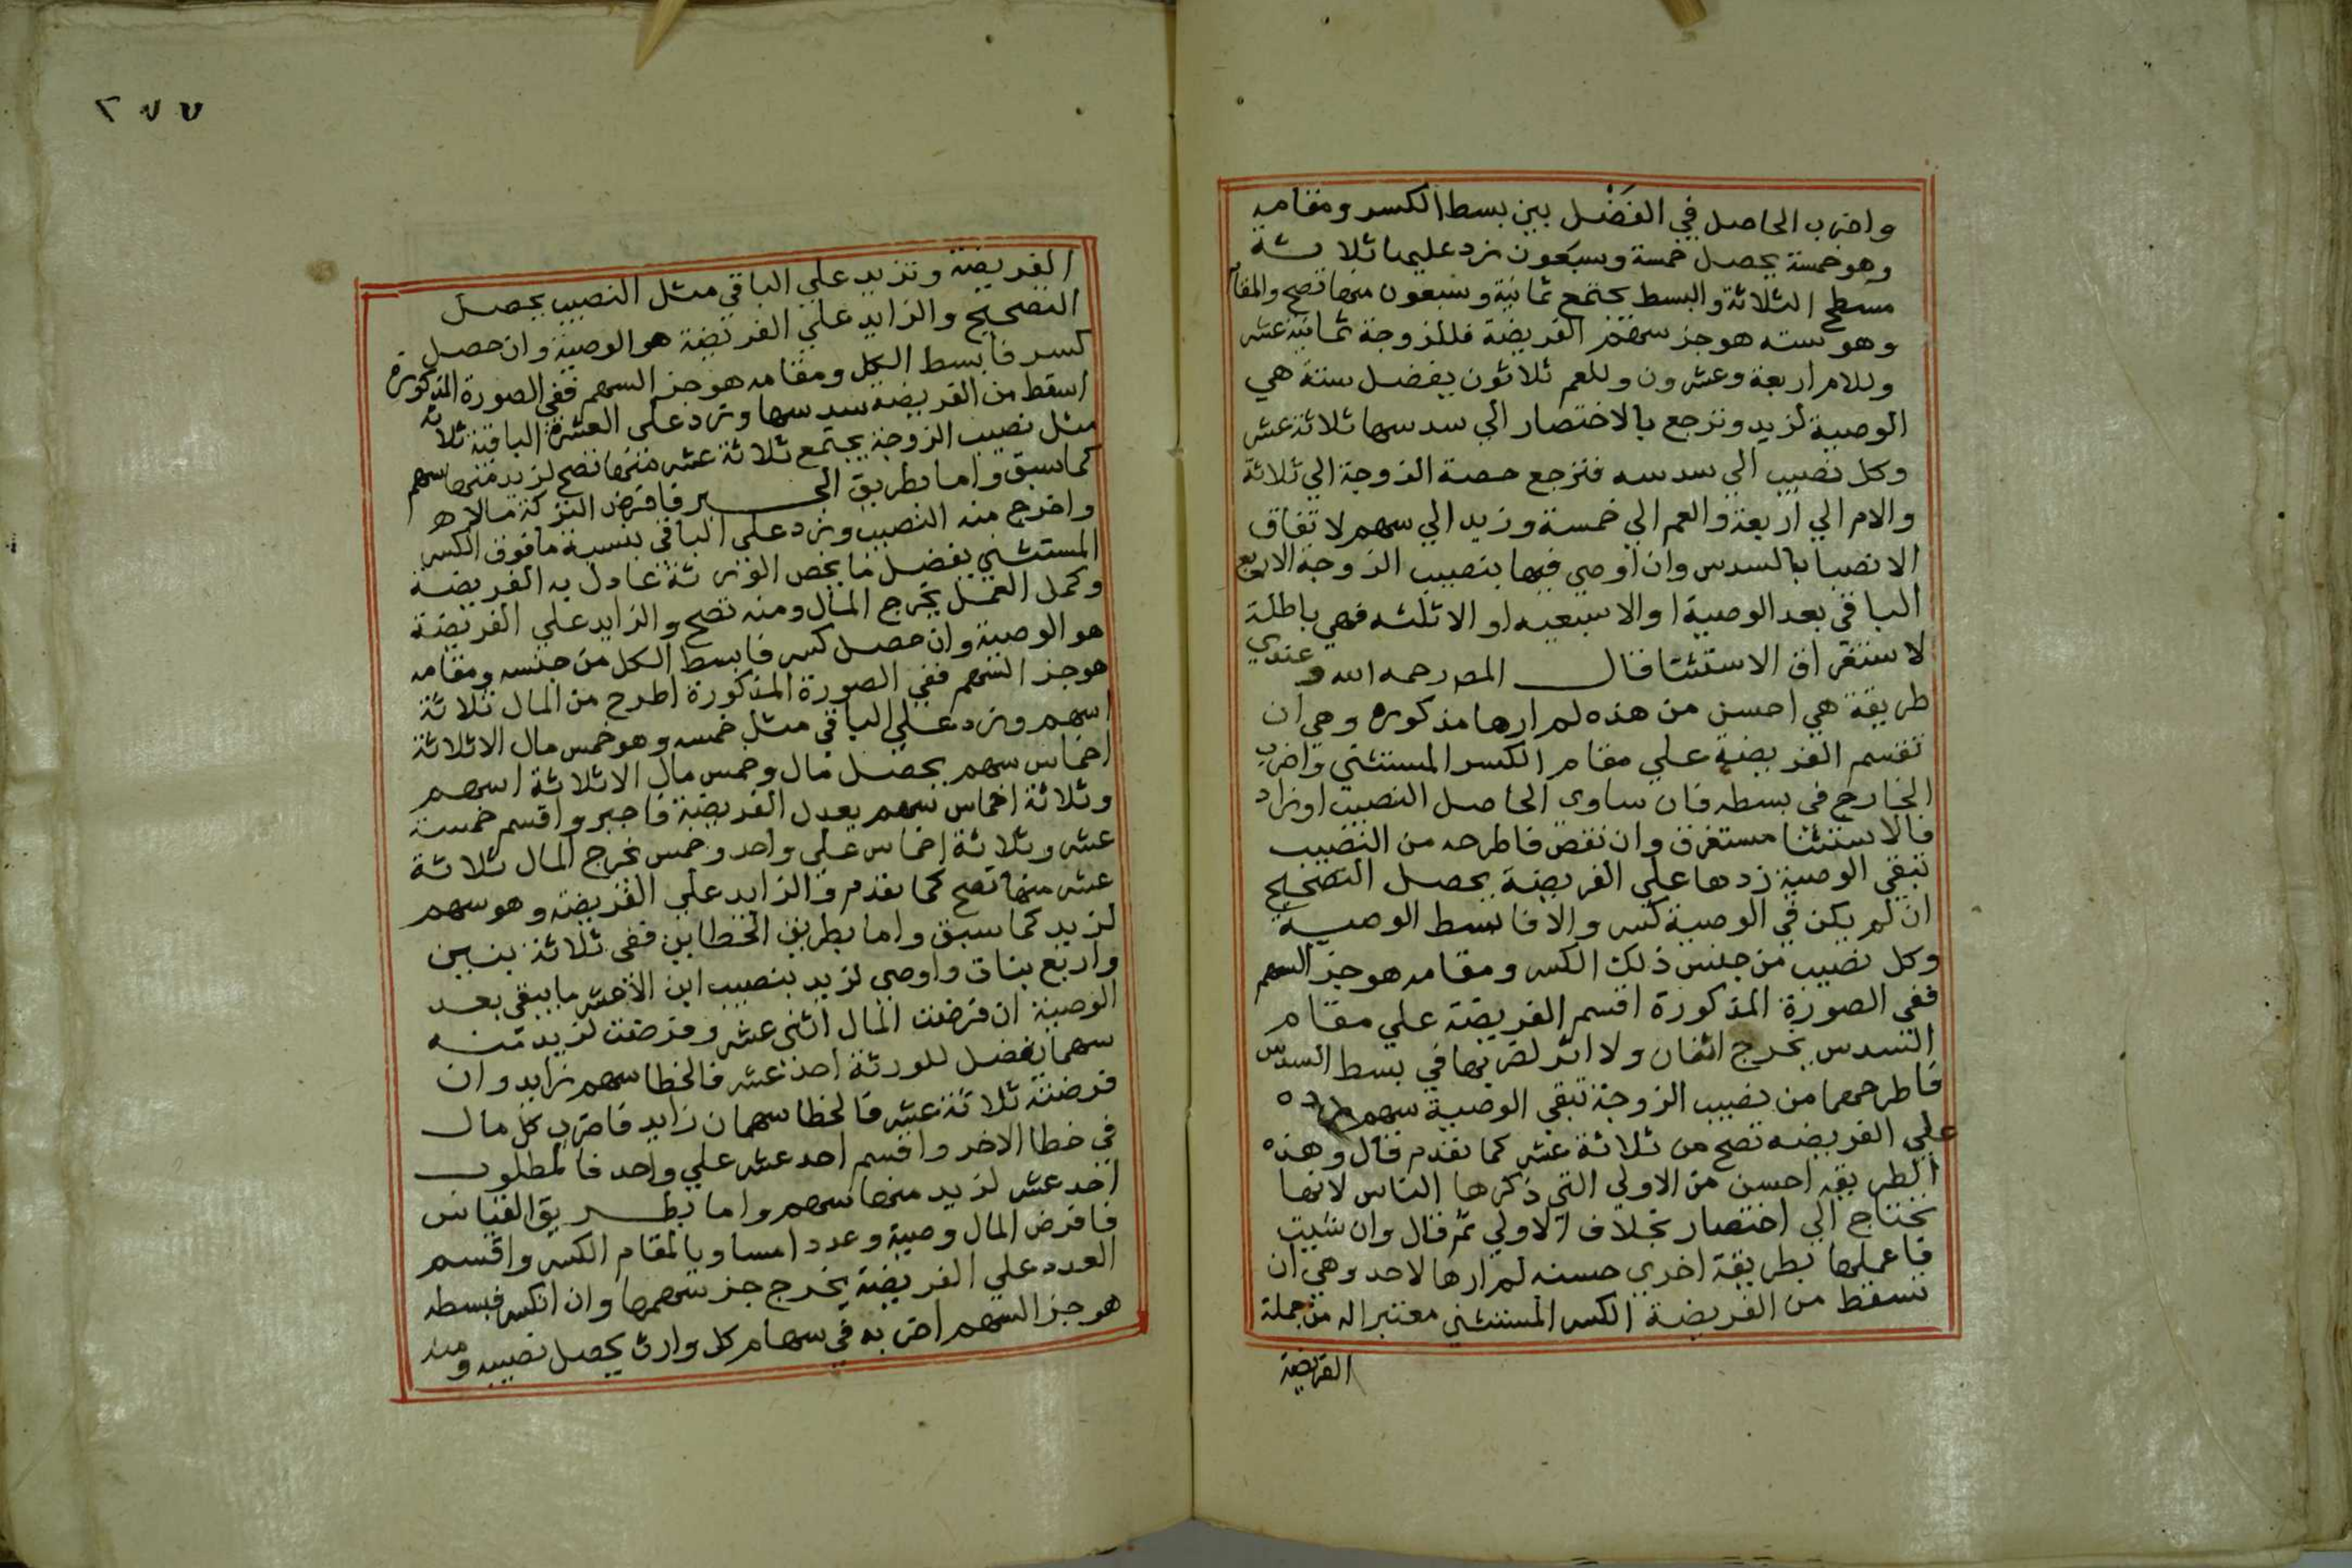 واضرب الحاصل في الفَضْل بين بسط الكسر ومقامه
وهو خمسة يحصل خمسة وسبعون زد عليها ثلاثة
مسطح الثلاثة والبسط يجتمع ثمانية وسبعون منها تصح والمقام
وهو سته هو جز سهم الفريضة فللزوجة ثمانية عشر
وللام اربعة وعشرون وللعم ثلاثون يفضل ستة هي
الوصية لزيد وترجع بالاختصار الي سدسها ثلاثة عشر
وكل نصيب الي سدسه فترجع حصة الزوجة الي ثلاثة
والام الي اربعة والعم الي خمسة وزيد الي سهم لاتفاق
الانصبا بالسدس وان اوصي فيها بنصيب الزوجة الا ربع
الباقي بعد الوصية او الا سبعيه او الا ثلثه فهي باطلة
لاستغراق الاستثنا قال المص رحمه الله وعندي
طريقة هي احسن من هذه لم ارها مذكوره وهي ان
تقسم الفريضة علي مقام الكسر المستثني واضرب
الخارج في بسطه فان ساوي الحاصل النصيب او زاد
فالاستثنا مستغرق وان نقص فاطرحه من النصيب
تبقي الوصية زدها علي الفريضة يحصل التصحيح
ان لم يكن في الوصية كسر والا فابسط الوصية
وكل نصيب من جنس ذلك الكسر ومقامه هو جز السهم
ففي الصورة المذكورة اقسم الفريضة علي مقام
السدس يخرج اثنان ولا اثر لضربها في بسط السدس
فاطرحهما من نصيب الزوجة تبقي الوصية سهم زده
علي الفريضه تصح من ثلاثة عشر كما تقدم قال وهذه
الطريقه احسن من الاولي التي ذكرها الناس لانها
تحتاج الي اختصار بخلاف الاولي ثم قال وان شيت
فاعملها بطريقة اخري حسنه لم ارها لاحد وهي ان
تسقط من الفريضة الكسر المستثني معتبرا له من جملة
الفريضة
٢٧٧
الفريضة وتزيد علي الباقي مثل النصيب يحصل
التصحيح والزايد علي الفريضة هو الوصية وان حصل
كسر فابسط الكل ومقامه هو جز السهم ففي الصورة المذكورة
اسقط من الفريضة سدسها وزد علي العشرة الباقية ثلاثة
مثل نصيب الزوجة يجتمع ثلاثة عشر منها تصح لزيد منها سهم
كما سبق واما بطريق الجبر فافرض التركة مالا
واخرج منه النصيب وزد علي الباقي بنسبة ما فوق الكسر
المستثني يفضل ما يخص الورثة عادل به الفريضة
وكمل العمل يخرج المال ومنه تصح والزايد علي الفريضة
هو الوصية وان حصل كسر فابسط الكل من جنسه ومقامه
هو جز السهم ففي الصورة المذكورة اطرح من المال ثلاثة
اسهم وزد علي الباقي مثل خمسه وهو خمس مال الا ثلاثة
اخماس سهم يحصل مال وخمس مال الا ثلاثة اسهم
وثلاثة اخماس سهم يعدل الفريضة فاجبر واقسم خمسة
عشر وثلاثة اخماس علي واحد وخمس يخرج المال ثلاثة
عشر منها تصح كما تقدم والزايد علي الفريضة وهو سهم
لزيد كما سبق واما بطريق الخطاين ففي ثلاثة بنين
واربع بنات واوصي لزيد بنصيب ابن الا عشر ما يبقي بعد
الوصية ان فرضت المال اثني عشر وفرضت لزيد منه
سهما يفضل للورثة احد عشر فالخطا سهم زايد وان
فرضته ثلاثة عشر فالخطا سهمان زايد فاضرب كل مال
في خطا الاخر واقسم احد عشر علي واحد فالمطلوب
احد عشر لزيد منها سهم واما بطريق القياس
فافرض المال وصية وعددا مساويا لمقام الكسر واقسم
العدد علي الفريضة يخرج جز سهمها وان انكسر فبسطه
هو جز السهم اضربه في سهام كل وارث يحصل نصيبه ومنه